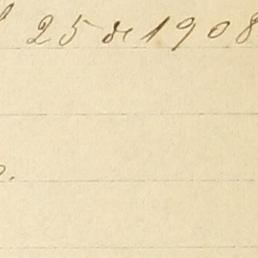 25 de 1908